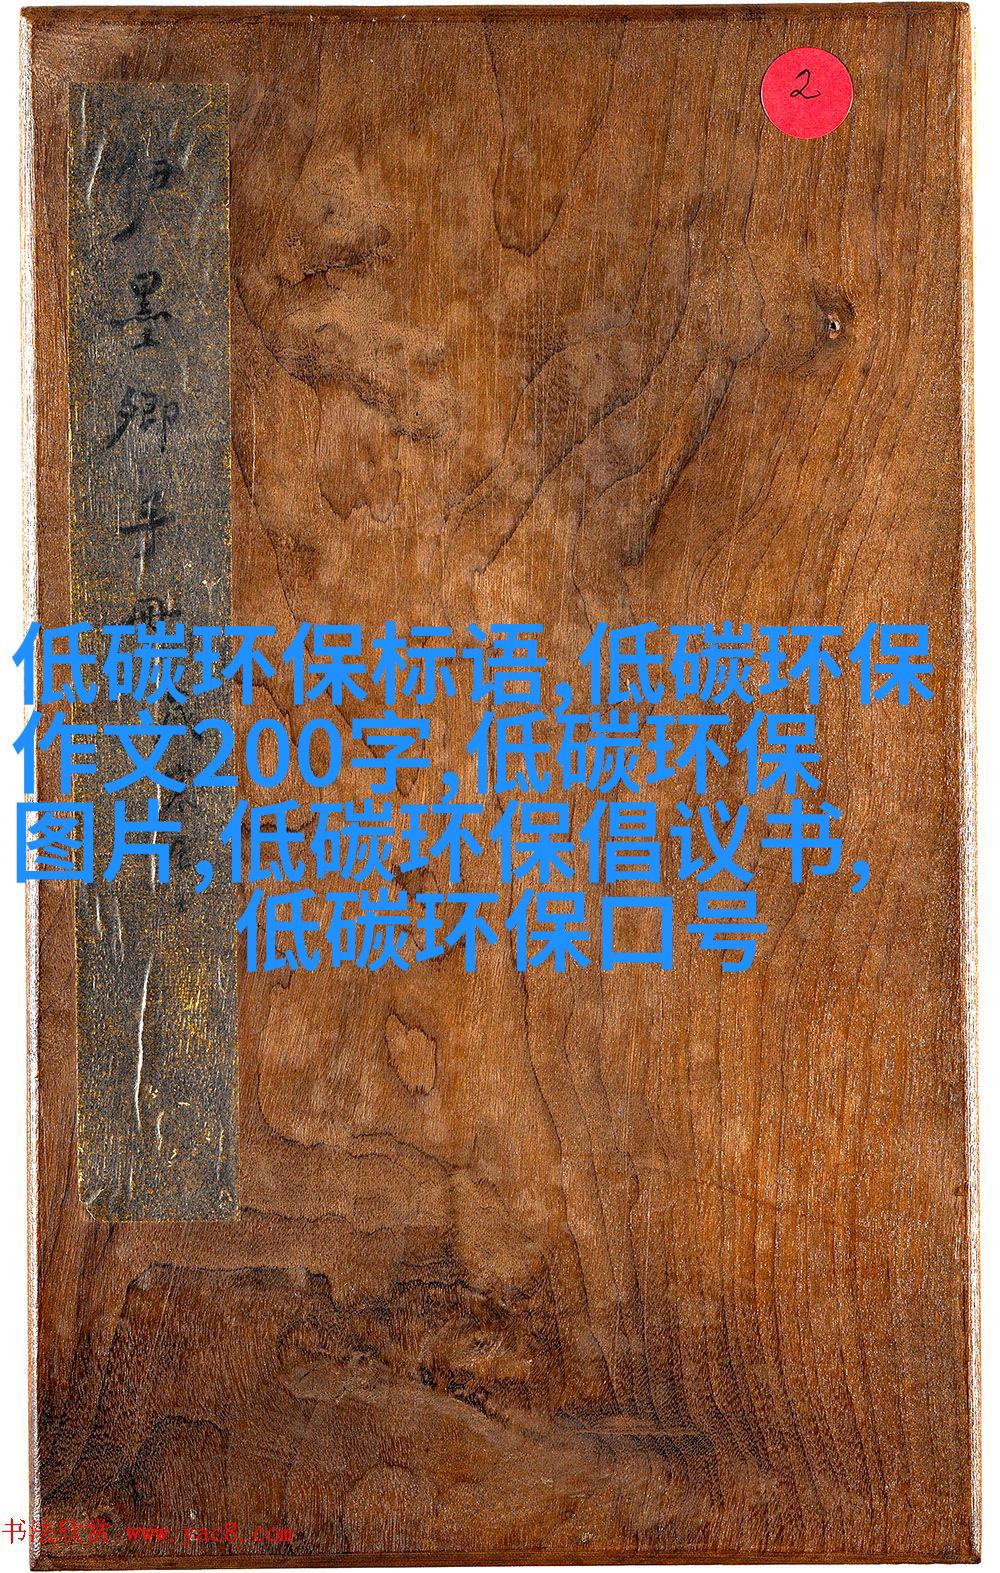 2
墨卿手册
低碳环保标语,低碳环保
作文200字,低碳环保
图片,低碳环保倡议书,
低碳环保口号
书法欣赏 www.yac8.com